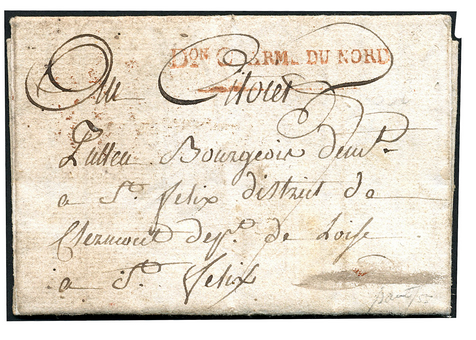 Don G ARM. DU NORD
Au Citoien
Bourgeois demt.
a St. felix district de
Clermont dept. de Loise
a St. felix